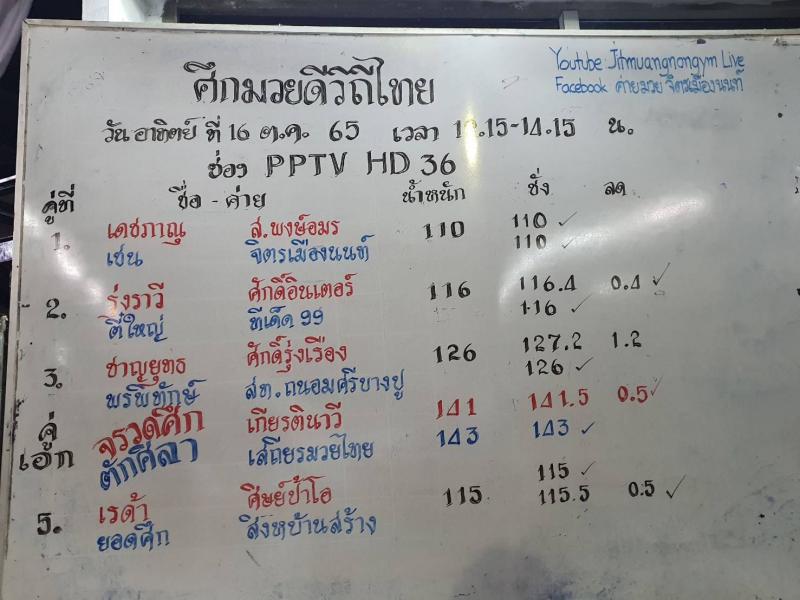 Youtube Jitmuangnongym Live
Facebook ค่ายมวย จิตรเมืองนนท์
ศึกมวยดีวิถีไทย
วัน อาทิตย์ ที่ 16 ต.ค. 65 เวลา .15-14.15 น.
ช่อง PPTV HD 36
คู่ที่ ชื่อ - ค่าย น้ำหนัก ชั่ง ลด
1. เดชภาณุ ส.พงษ์อมร 110 110 ✓
เชน จิตรเมืองนนท์ 110 ✓
2. รุ่งราวี ศักดิ์อินเตอร์ 116 116.4 0.4 ✓
ตี๋ใหญ่ ทีเด็ด 99 116 ✓
3. ชาญยุทธ ศักดิ์รุ่งเรือง 126 127.2 1.2
พรพิทักษ์ สท.ถนอมศรีบางปู 126 ✓
คู่เอก จรวดศึก เกียรตินาวี 141 141.5 0.5 ✓
ตักศิลา เสถียรมวยไทย 143 143 ✓
5. เรด้า ศิษย์ป๋าโอ 115 115 ✓
ยอดศึก สิงหบ้านสร้าง 115.5 0.5 ✓